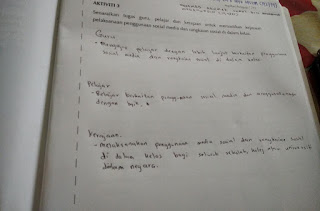 AKTIVITI 3
Senaraikan tugas guru, pelajar dan kerajaan untuk memastikan
pelaksanaan penggunaan sosial media dan rangkaian sosial di dalam kelas
Guru
- Mengajar pelajar dengan lebih lanjut berkaitan penggunaan
sosial media dan rangkaian sosial di dalam kelas
Pelajar
- Belajar berkaitan penggunaan sosial media dan
dengan baik.
Kerajaan.
- melaksanakan penggunaan media sosial dan rangkaian sosial
di dalam kelas bagi seluruh sekolah, kolej atau universiti
didalam negara.